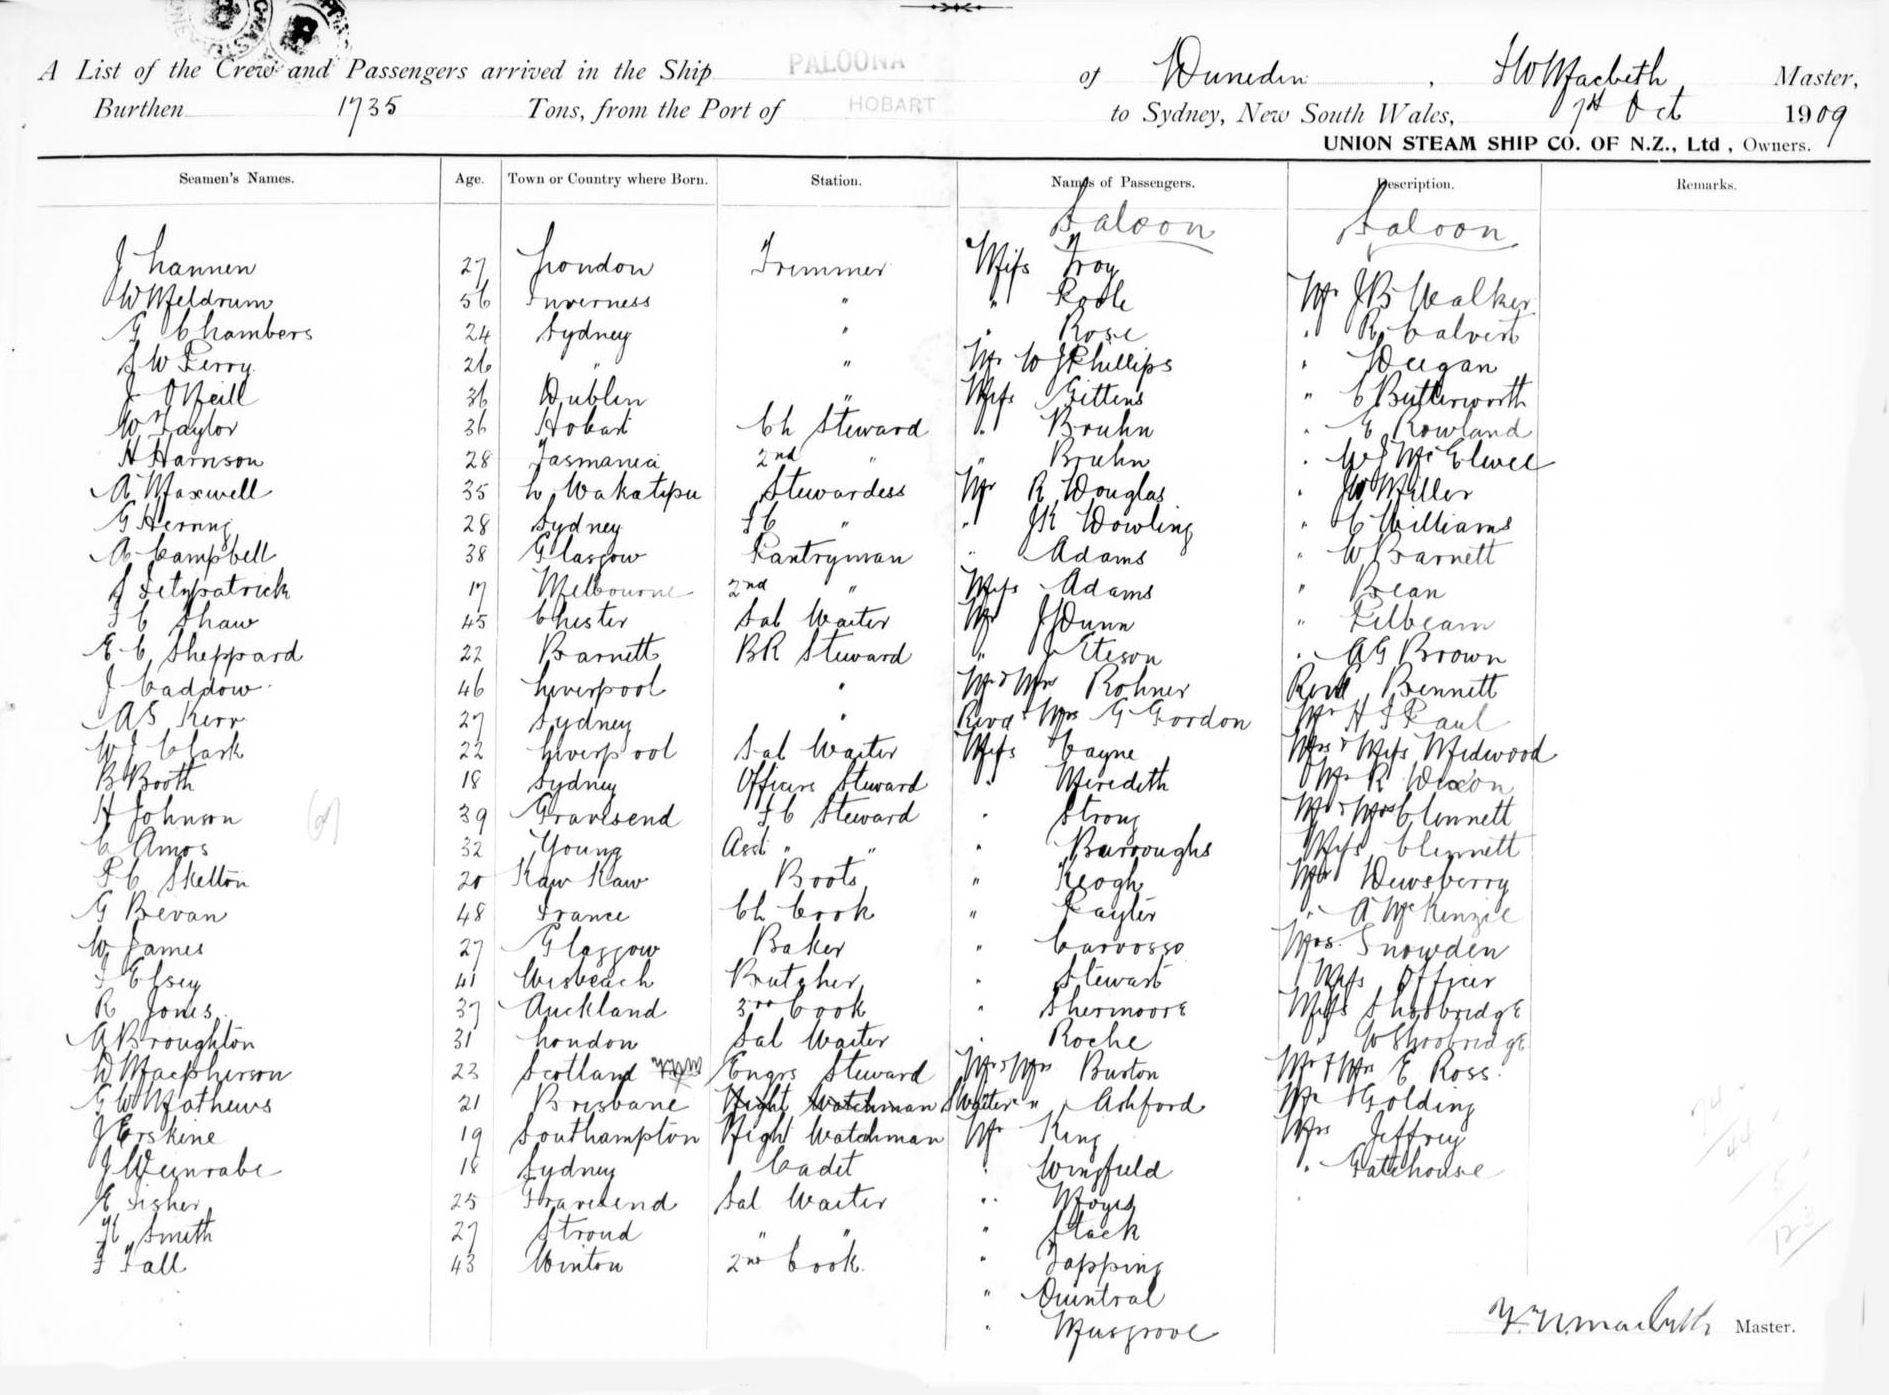 A List of the Crew and Passengers arrived in the Ship PALOONA of Dunedin, H W Macbeth Master,
Burthen 1735 Tons, from the Port of HOBART to Sydney, New South Wales, 7th Oct 1909
UNION STEAM SHIP CO. OF N.Z., Ltd, Owners.
Seamen's Names. Age. Town or Country where Born. Station. Names of Passengers. Description. Remarks.
Saloon Saloon
J Lannen 27 London Trimmer Miss Troy
W Meldrum 56 Inverness " " Poole Mr J B Walker
G Chambers 24 Sydney " " Rose " R Calvert
S W Perry 26 " " Mr W J Phillips " Deegan
J O'Neill 36 Dublin " Miss Gittens " C Butterworth
W Taylor 36 Hobart Ch Steward " Bruhn " E Rowland
H Harrison 28 Tasmania 2nd " " Bruhn " W J McElwee
A Maxwell 35 L Wakatipu Stewardess Mr R Douglas " J W Miller
G Herring 28 Sydney F C " " J K Dowling " C Williams
A Campbell 38 Glasgow Pantryman " Adams " W Barnett
J Fitzpatrick 17 Melbourne 2nd " Miss Adams " Bean
F C Shaw 45 Chester Sal Waiter Mr J Dunn " Pilbeam
E C Sheppard 22 Barnett BR Steward " J Eteson " A G Brown
J Caddow 46 Liverpool " Mr & Mrs Rohner Revd Bennett
A S Kerr 27 Sydney " Revd & Mrs G Gordon Mr H F Paul
W J Clark 22 Liverpool Sal Waiter Miss Cayne Mrs & Miss Midwood
B Booth 18 Sydney Officers Steward " Meredith Mr R Dixon
H Johnson 39 Gravesend F C Steward " Strong Mr & Mrs Clennett
C Amos 32 Young Asst " " " Burroughs Miss Clennett
P C Skelton 20 Kaw Kaw Boots " Keogh Mr Dewsberry
G Bevan 48 France Ch Cook " Payter " A McKenzie
W James 27 Glasgow Baker " Carvosso Mrs. Snowden
F Elsey 41 Wisbeach Butcher " Stewart Miss Officer
R Jones 37 Auckland 3rd Cook " Shermoore Miss Shoobridge
A Broughton 31 London Sal Waiter " Roche " W Shoobridge
D MacPherson 23 Scotland Engrs Steward Mr & Mrs Burton Mr & Mrs E Ross
G W Mathews 21 Brisbane Night Watchman S Waiter " " Ashford Mr Golding
J Erskine 19 Southampton Night Watchman Mr King Mrs Jeffrey
J Weynrabe 18 Sydney Cadet " Wingfield " Gatehouse
E Fisher 25 Gravesend Sal Waiter " Moyes
H Smith 27 Stroud " " " Stack
F Fall 43 Winton 2nd Cook " Topping
" Quintral
" Musgrove
Master.